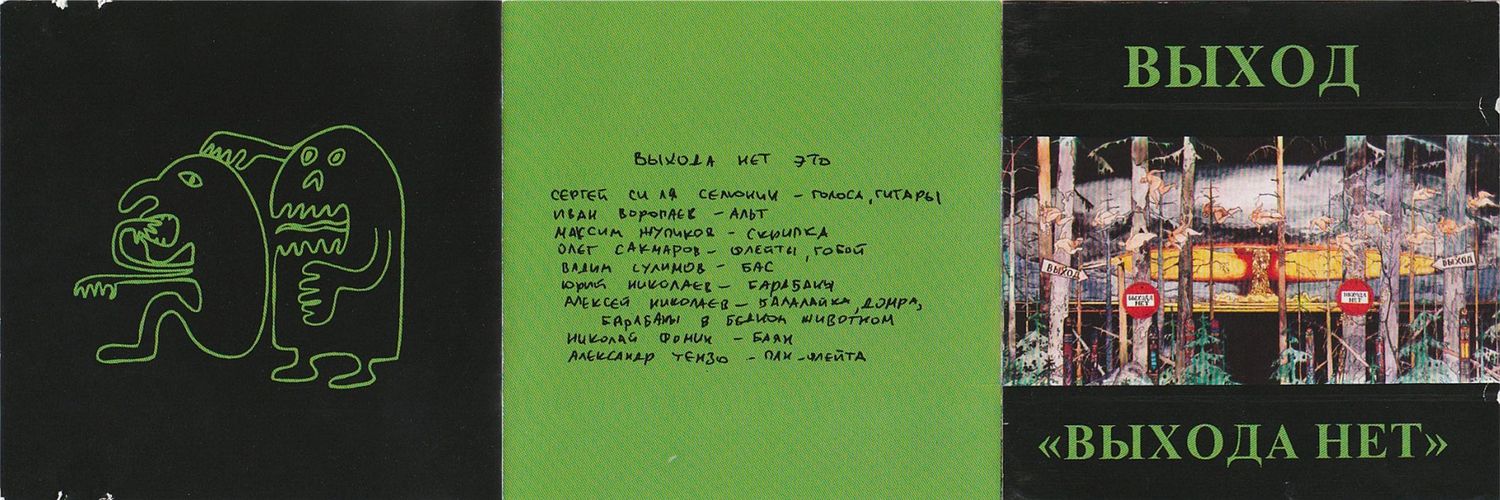 ВЫХОДА НЕТ ЭТО
СЕРГЕЙ СИЛЯ СЕЛЮНИН – ГОЛОСА, ГИТАРЫ
ИВАН ВОРОПАЕВ – АЛЬТ
МАКСИМ ЖУПИКОВ – СКРИПКА
ОЛЕГ САКМАРОВ – ФЛЕЙТЫ, ГОБОЙ
ВАДИМ СУЛИМОВ – БАС
ЮРИЙ НИКОЛАЕВ – БАРАБАНЫ
АЛЕКСЕЙ НИКОЛАЕВ – БАЛАЛАЙКА, ДОМРА,
БАРАБАНЫ В БЕДНОМ ЖИВОТНОМ
НИКОЛАЙ ФОМИН – БАЯН
АЛЕКСАНДР ТЕНЗО – ПАН-ФЛЕЙТА
ВЫХОД
ВЫХОД
ВЫХОД
ВЫХОДА
НЕТ
ВЫХОДА
НЕТ
«ВЫХОДА НЕТ»